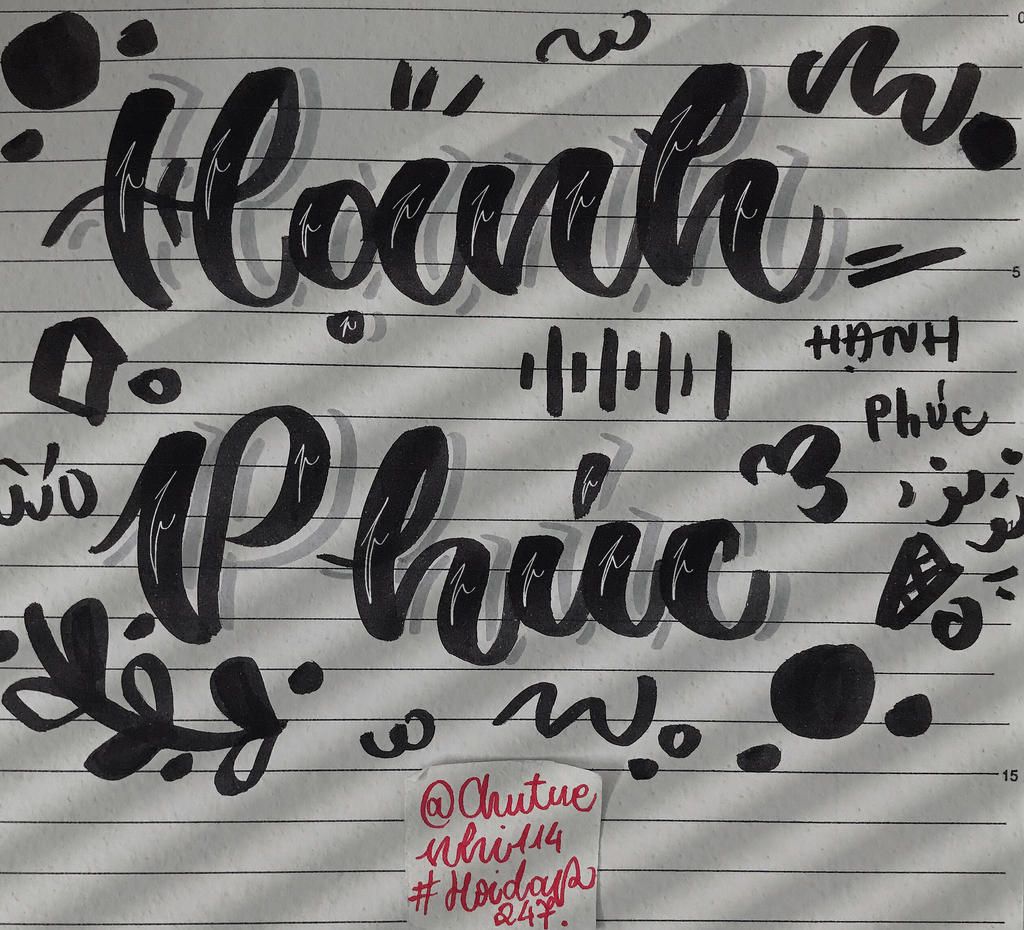 Hạnh
HẠNH
Phúc
Phúc
@Chutue
nhi1114
#Hoidap
247.
0
5
15